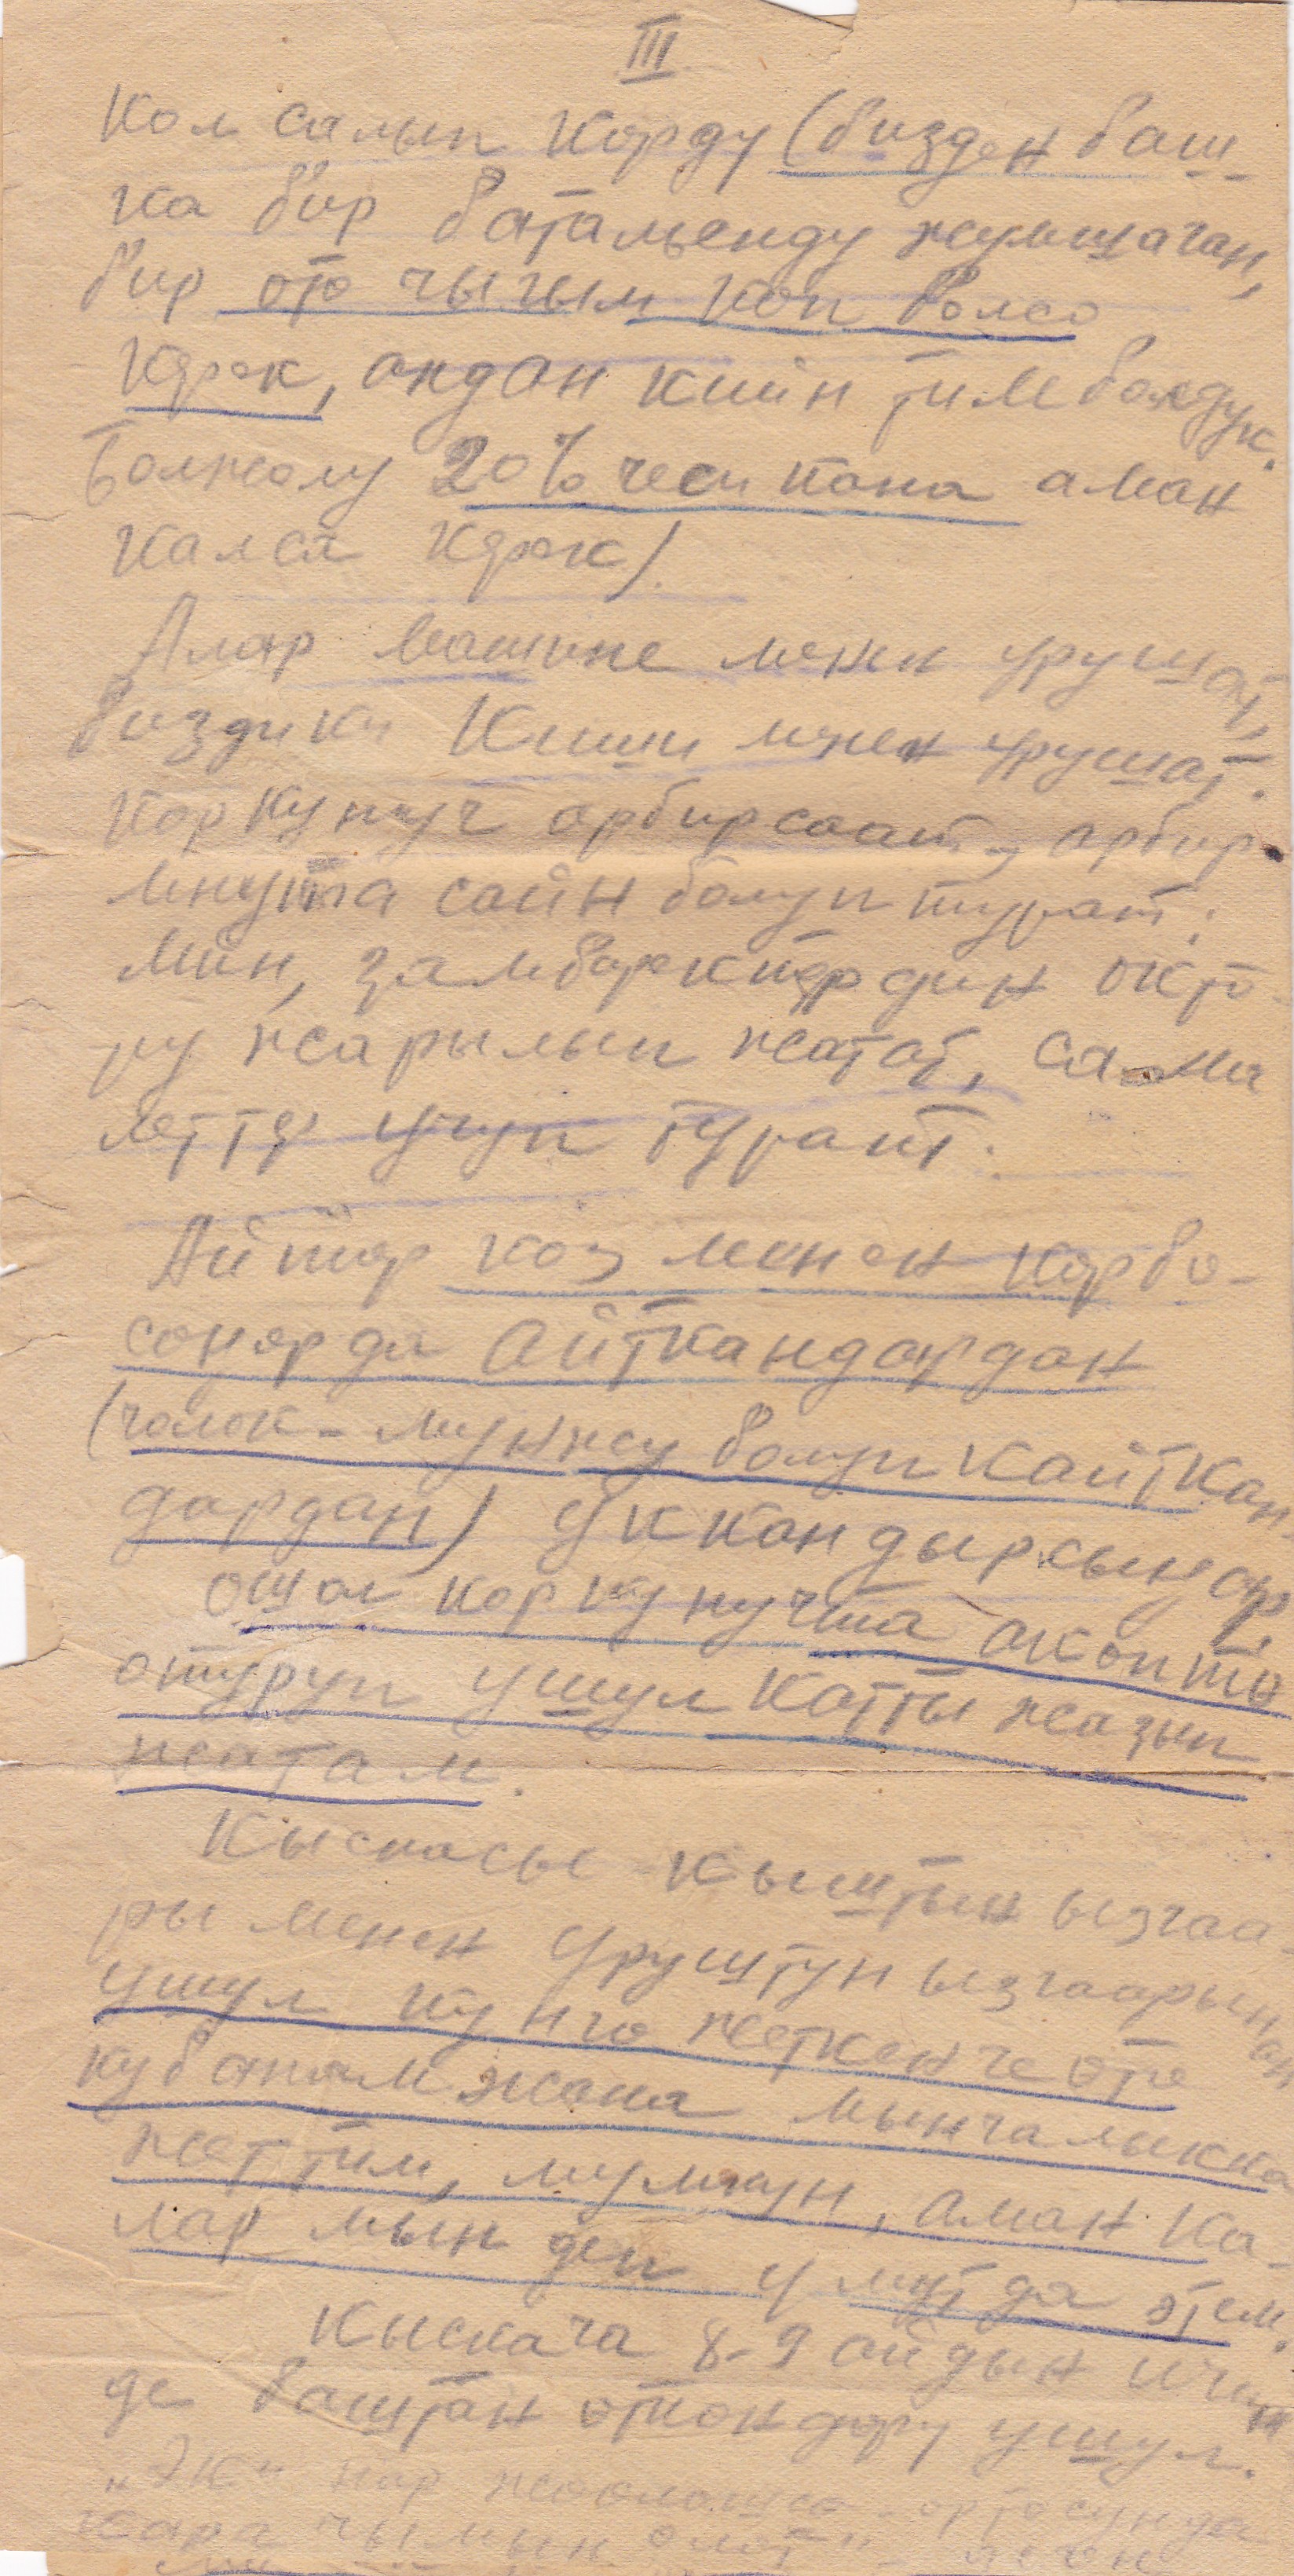 III
Кол салып корду (бизден баш-
ка бир батальенду жумшаган,
бир ото чыгым коп болсо
керек, андан кийн тим болдук.
Болжолу 20% чеси кана аман
калса керек).
Алар машине менен урушат,
биздики Киши менен урушат.
Коркунуч арбир саат, арбир
мнута сайн болуп турат.
Мин, замбаректердин окто-
ру жарылып жатат, само
леттер учуп турат.
Айтор коз менен корбо-
сонор да айткандардан
(чолок-мунжу болуп кайткан-
дардан) уккандырсынар,
ошол коркунучта акопто
отуруп ушул катты жазып
жатам.
Кыскасы кыштын ызгаа-
ры менен уруштун ызгаарынан
ушул кунго жеткенче ото
кубанам жана мынчалыкка
жеттим, мумкун, аман ка-
лармын деп умут да этем.
Кыскача 8-9 айдын ичин
де баштан откондору ушул.
"Эки нар жоолашса ортосунда
кара чымын олот"